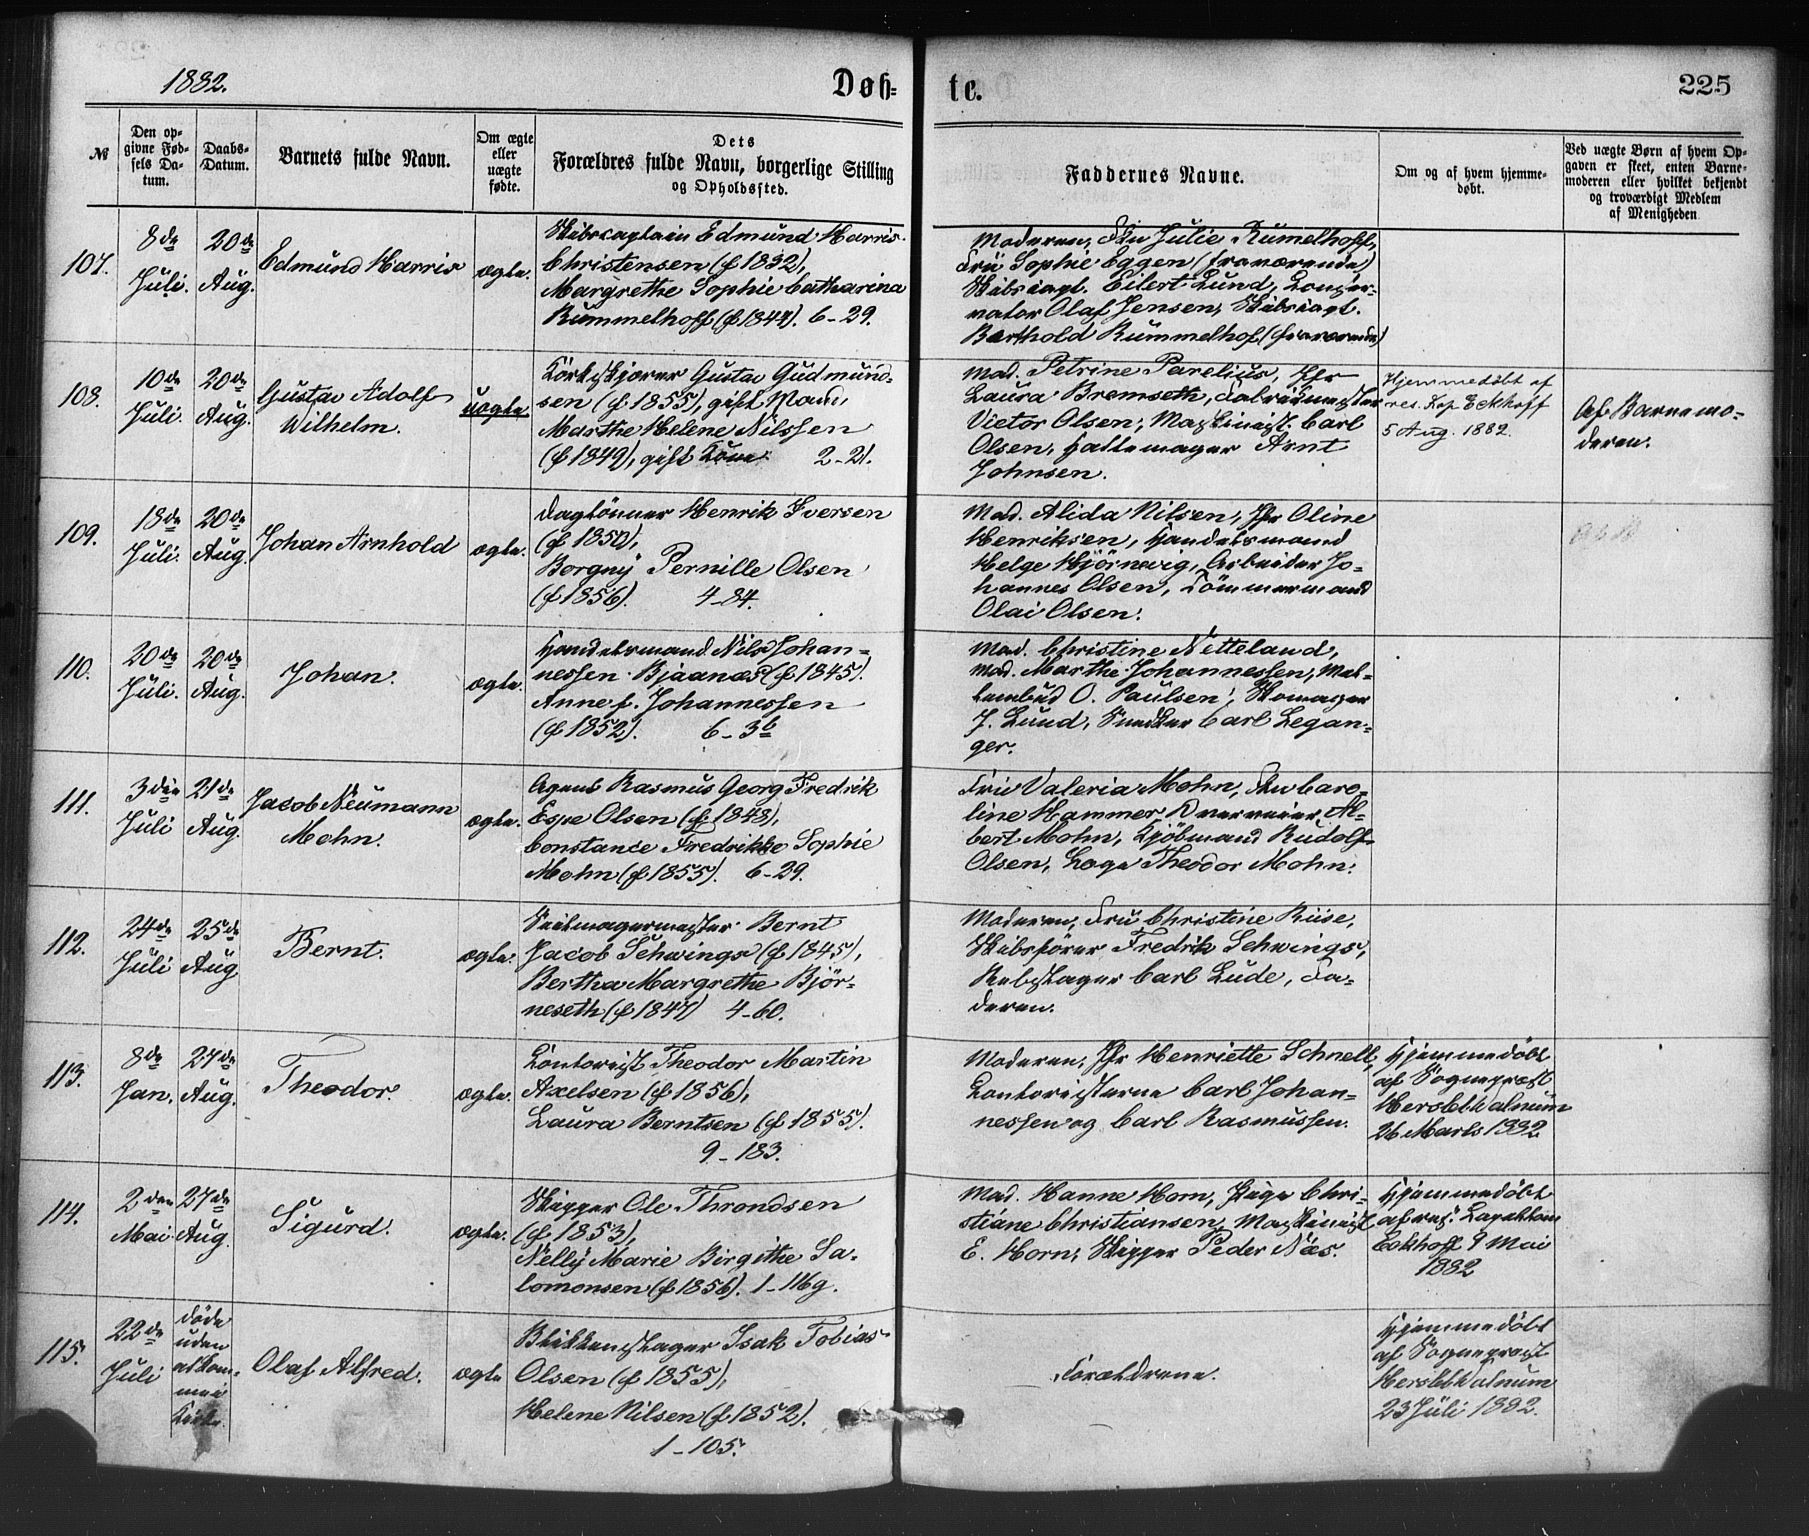 1882.
Døb-
te.
225
№
Den op-
givne Fød-
sels Da-
tum.
Daabs-
Datum.
Barnets fulde Navn.
Om ægte
eller
uægte
fødte.
Dets
Forældres fulde Navn, borgerlige Stilling
og Opholdssted.
Faddernes Navne.
Om og af hvem hjemme-
døbt.
Ved uægte Børn af hvem Op-
gaven er skeet, enten Barne-
moderen eller hvilket bekjendt
og troværdigt Medlem
af Menigheden
107.
8de
Juli.
20de
Aug.
Edmund Harris
ægte.
Skibscaptain Edmund Harris
Christensen (f 1832),
Margrethe Sophie Catharina
Rummelhoff (f 1844). 6-29.
Moderen, Fru Julie Rumelhoff,
Fru Sophie Eggen (fraværende)
Skibscapt. Eilert Lund, Konser-
vator Olaf Jensen, Skibscapt.
Barthold Rummelhof (fraværende)
108.
10de
Juli.
20de
Aug.
Gustav Adolf
Wilhelm.
uægte.
Gustav Gudmund-
sen (f. 1855), gift Mand,
Marthe Helene Nilssen
(f 1849), gift Kone. 2-21.
Mad. Petrine Parelius, Jfr
Laura Bremseth, Fabrikmester
Victor Olsen, Maskinist Carl
Olsen, Hattemager Arnt
Johnsen.
Hjemmedøbt af
res. Kap Eckhoff
5 Aug. 1882.
Af Barnemo-
deren.
109.
18de
Juli.
20de
Aug.
Johan Arnhold
ægte.
Daglönner Henrik Iversen
(f 1850),
Borgny Pernille Olsen
(f 1856). 4-84.
Mad. Alida Nilsen, Jfr Oline
Henriksen, Handelsmand
Helge Hjörnevig, Arbeider Jo-
hannes Olsen, Tömmermand
Olai Olsen.
110.
20de
Juli.
20de
Aug.
Johan.
ægte.
Handelsmand Nils Johan-
nessen Bjaanæs (f 1845).
Anne f. Johannessen
(f 1852). 6-3b
Mad. Christine Netteland,
Mad. Marthe Johannessen, Mæg-
lerbud O. Paulsen, Skomager
J. Lund, Snedker Carl Legan-
ger.
111.
3die
Juli
21de
Aug.
Jacob Neumann
Mohn.
ægte.
Agent Rasmus Georg Fredrik
Espe Olsen (f. 1848),
Constance Fredrikke Sophie
Mohn (f 1853). 6-29.
Fru Valeria Mohn, Fru Caro-
line Hammer, Overveier Al-
bert Mohn, Kjöbmand Rudolf
Olsen, Læge Theodor Mohn.
112.
24de
Juli
25de
Aug
Bernt.
ægte.
Seilmagermester Bernt
Jacob Schwings (f 1845),
Bertha Margrethe Björ-
neseth (f 1847) 4-60.
Moderen, Fru Christine Riise,
Skibsförer Fredrik Schwings,
Rebslager Carl Lude, Fa-
deren.
113.
8de
Jan.
27de
Aug.
Theodor.
ægte.
Kontorist Theodor Martin
Axelsen (f 1856),
Laura Berntsen (f 1855).
9-183.
Moderen, Jfr Henriette Schnell,
Kontoristerne Carl Johan-
nessen og Carl Rasmussen.
Hjemmedöbt
af Sognepræst
Hersleb Walnum
26 Marts 1882
114.
2den
Mai
27de
Aug.
Sigurd.
ægte.
Skipper Ole Throndsen
(f 1853),
Nelly Marie Birgithe Sa-
lomonsen (f 1856). 1-116g.
Mad. Hanne Horn, Pige Chri-
stiane Christiansen, Maskinist
E. Horn, Skipper Peder Næs.
Hjemmedöbt
af res. Kapellan
Eckhoff 9 Mai
1882
115.
22de
Juli
Døde
uden
at kom-
me i
Kirke.
Olaf Alfred.
ægte
Blikkenslager Isak Tobias
Olsen (f 1855),
Helene Nilsen (f. 1852).
1-105.
Forældrene.
Hjemmedöbt
af Sognepræst
Hersleb Walnum
23 Juli 1882.